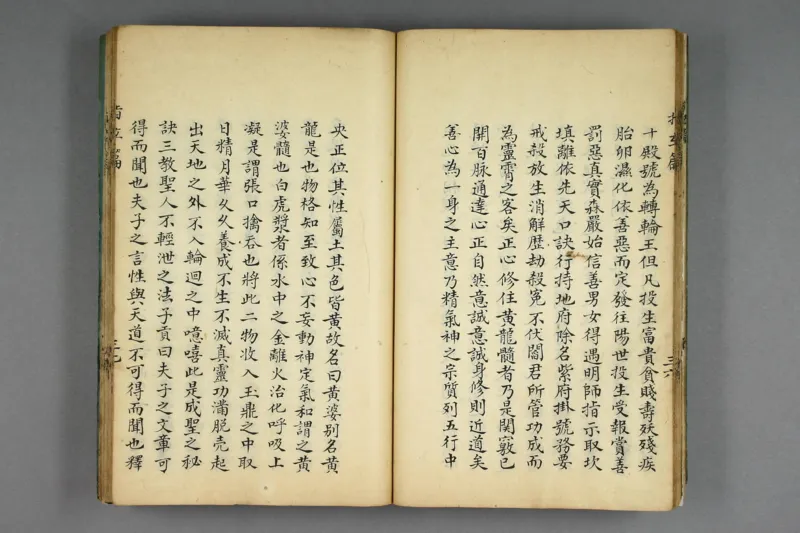 十殿號為轉輪王但凡投生富貴貧賤壽妖殘疾
胎卵濕化依善惡而定發往陽世投生受報賞善
罰惡真實森嚴始信善男女得遇明師指示取坎
填離依先天口訣行持地府除名紫府掛號務要
戒殺放生消解歷劫殺冤不伏閻君所管功成而
為靈霄之客矣正心修住黃龍髓者乃是関竅已
開百脉通達心正自然意誠意誠身修則近道矣
善心為一身之主意乃精氣神之宗質列五行中
三六
央正位其性屬土其色皆黃故名曰黃婆別名黃
龍是也物格知至致心不妄動神定氣和謂之黃
婆髓也白虎漿者係水中之金離火治化呼吸上
凝是謂張口擒吞也將此二物收入玉鼎之中取
日精月華久久養成不生不滅真靈功滿脱壳起
出天地之外不入輪迴之中噫嘻此是成聖之秘
訣三教聖人不輕泄之法子貢曰夫子之文章可
得而聞也夫子之言性與天道不可得而聞也釋
三七